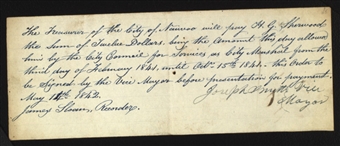 The Treasurer of the City of Nauvoo will pay H. G. Sherwood
the Sum of Twelve Dollars. being the Amount this day allowed
him by the City Council for Services as City Marshal from the
third day of February 1841, until Octr. 15th 1841. this Order to
be Signed by the Vice Mayor before presentation for payment.
May 14th 1842.
Joseph Smith Vice
Mayor
James Sloan, Recorder.